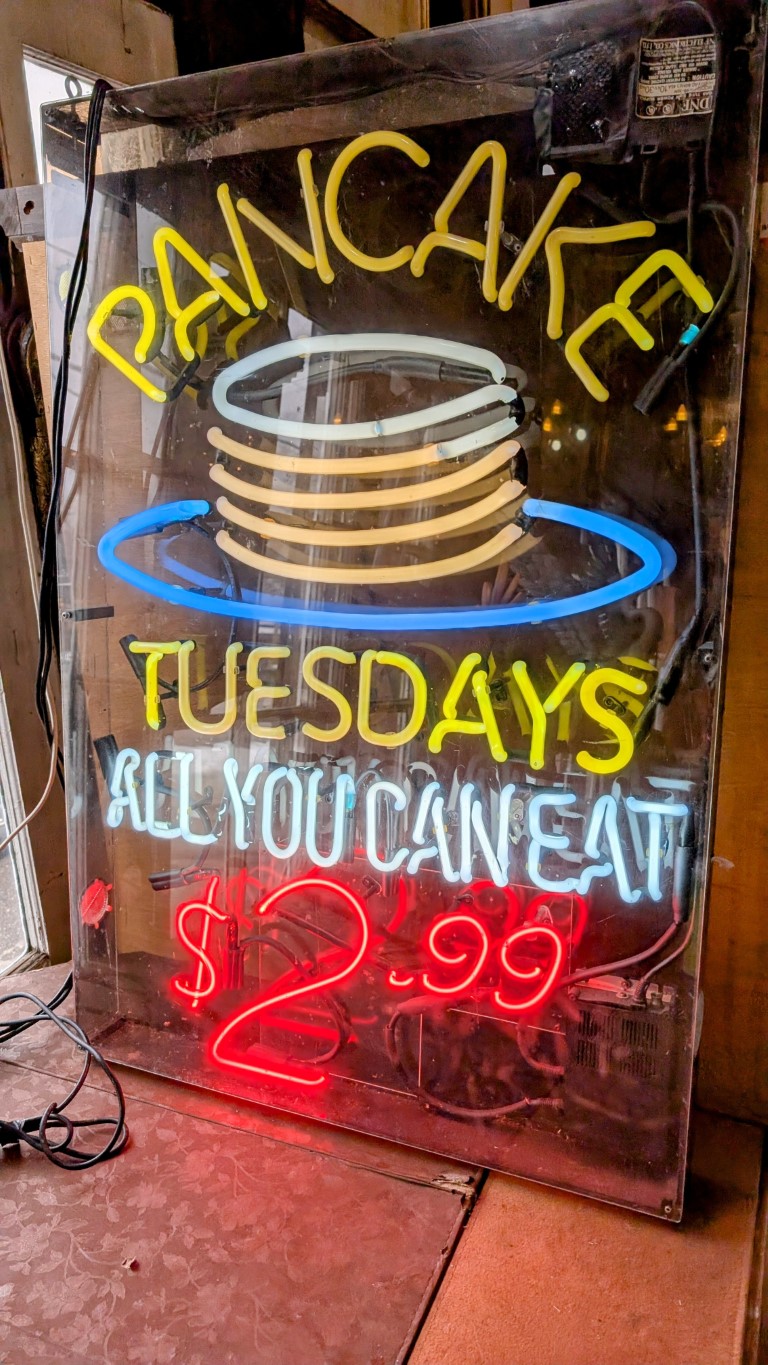 PANCAKE
TUESDAYS
ALL YOU CAN EAT
$2.99
CAUTION
DNF